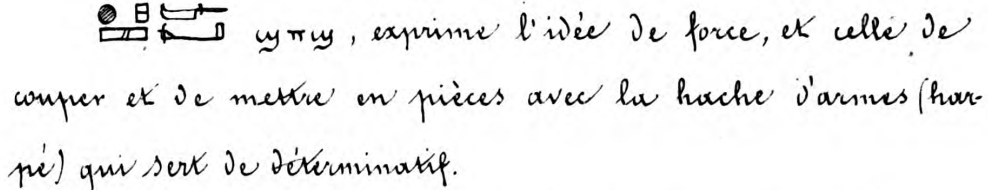 ϣⲡϣ, exprime l'idée de force, et celle de
couper et de mettre en pièces avec la hache d'armes (har-
pé) qui sert de déterminatif.